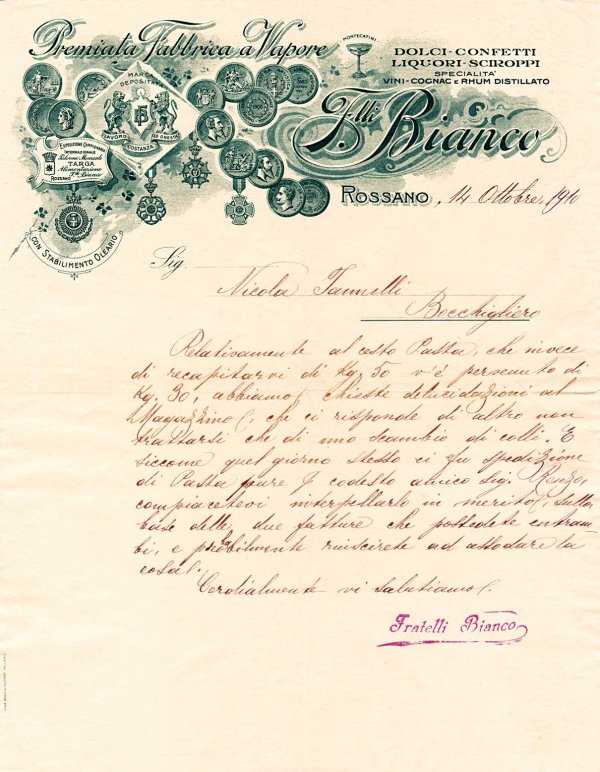 Premiata Fabbrica a Vapore
MONTECATINI
DOLCI-CONFETTI
LIQUORI-SCIROPPI
SPECIALITA'
VINI-COGNAC E RHUM DISTILLATO
MARCA
DEPOSITATA
FB
LAVORO ED ONESTÀ
COSTANZA
F.lli Bianco
ESPOSIZIONE CAMPIONARIA
INTERNAZIONALE
TARGA
Alimentazione
F.lli Bianco
ROSSANO
CON STABILIMENTO OLEARIO
ROSSANO, 14 Ottobre, 1910
Sig.
Nicola Iannelli
Bocchigliero
Relativamente al cesto Pasta, che invece
di recapitarvi di Kg. 50 v'è pervenuto di
Kg. 30, abbiamo chieste delucidazioni al
Magazzino, che ci risponde di altro non
trattarsi che di uno scambio di colli. E
siccome quel giorno stesso ci fu spedizione
di Pasta pure p codesto amico Sig. Renzo,
compiacetevi interpellarlo in merito, sulla
base delle due fatture che possedete entram-
bi, e probabilmente riuscirete ad assodare la
cosa.
Cordialmente vi salutiamo.
Fratelli Bianco